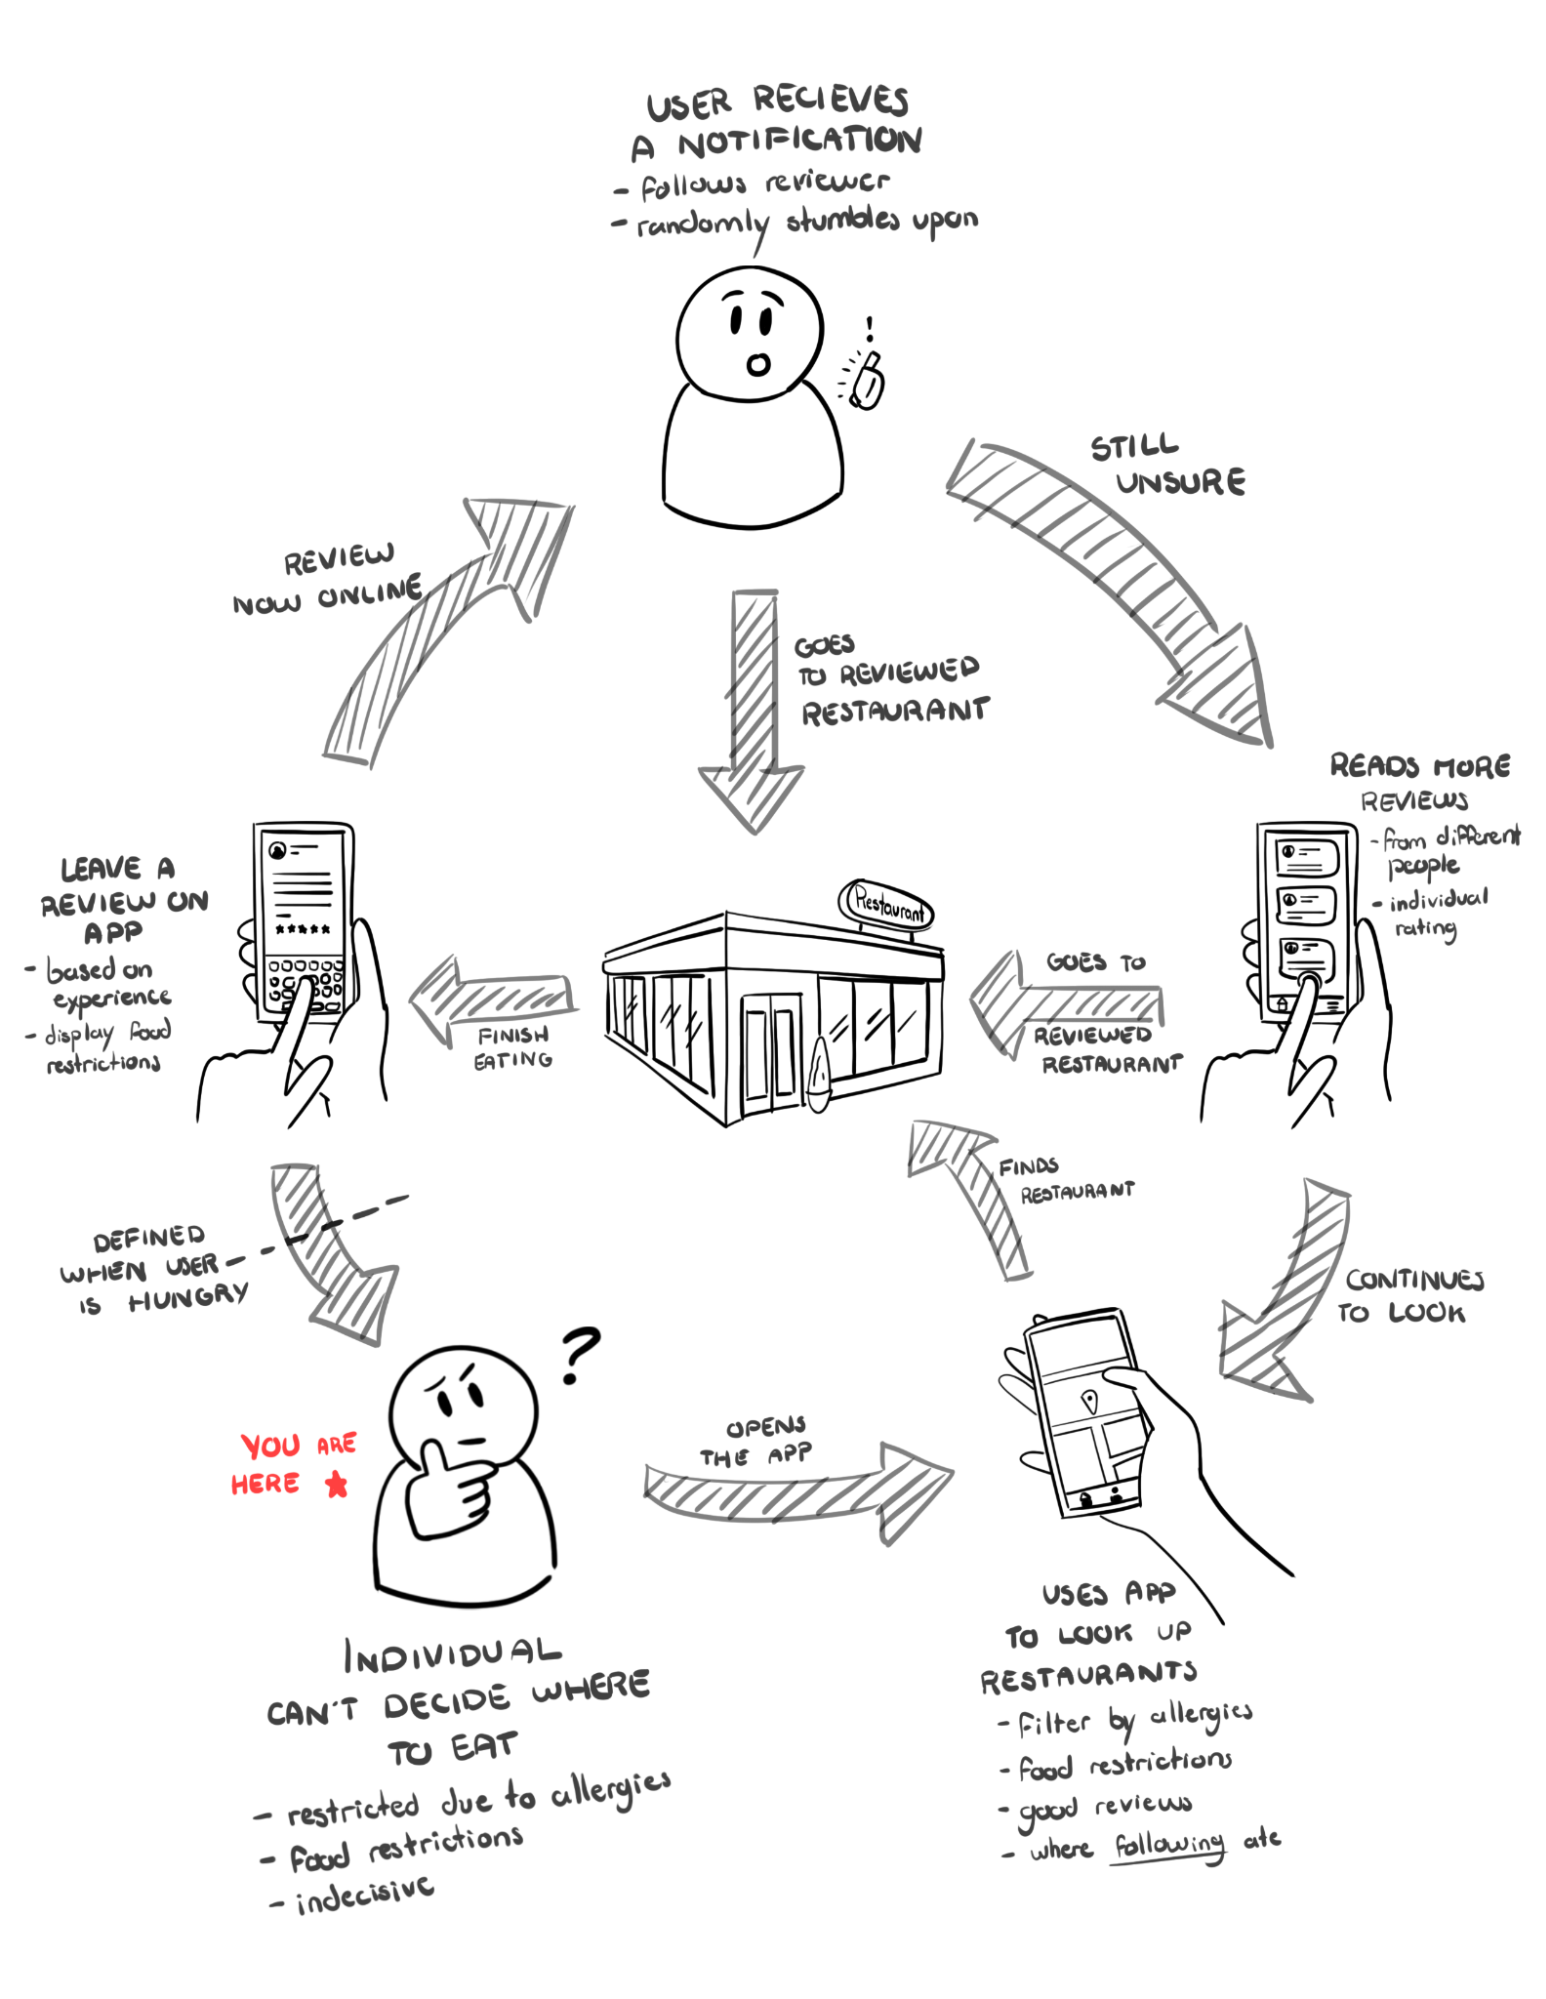 USER RECIEVES
A NOTIFICATION
- follows reviewer
- randomly stumbles upon
!
STILL
UNSURE
REVIEW
NOW ONLINE
GOES
TO REVIEWED
RESTAURANT
READS MORE
REVIEWS
- from different
people
- individual
rating
LEAVE A
REVIEW ON
APP
- based on
experience
- display food
restrictions
Restaurant
GOES TO
REVIEWED
RESTAURANT
FINISH
EATING
FINDS
RESTAURANT
DEFINED
WHEN USER
IS HUNGRY
CONTINUES
TO LOOK
?
YOU ARE
HERE ★
OPENS
THE APP
INDIVIDUAL
CAN'T DECIDE WHERE
TO EAT
- restricted due to allergies
- food restrictions
- indecisive
USES APP
TO LOOK UP
RESTAURANTS
- filter by allergies
- food restrictions
- good reviews
- where following ate